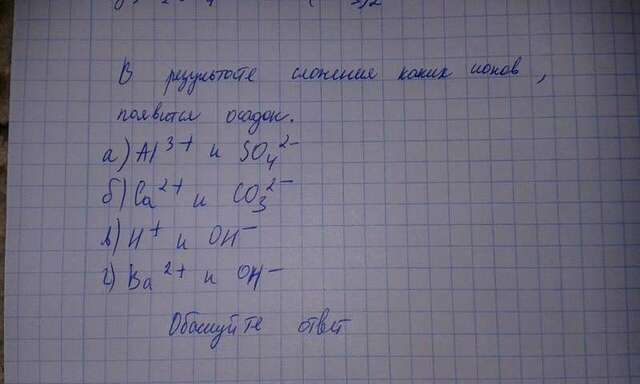 В результате сложения каких ионов,
появится осадок.
а) Al³⁺ и SO₄²⁻
б) Ca²⁺ и CO₃²⁻
в) H⁺ и OH⁻
г) Ba²⁺ и OH⁻
Обоснуйте ответ